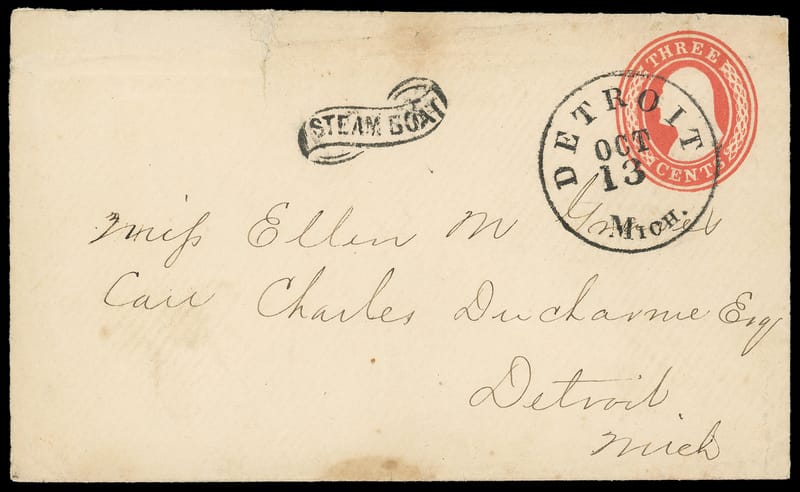 THREE
CENTS
STEAM BOAT
DETROIT
OCT
13
MICH.
Miss Ellen M
Care Charles Ducharme Esq
Detroit
Mich